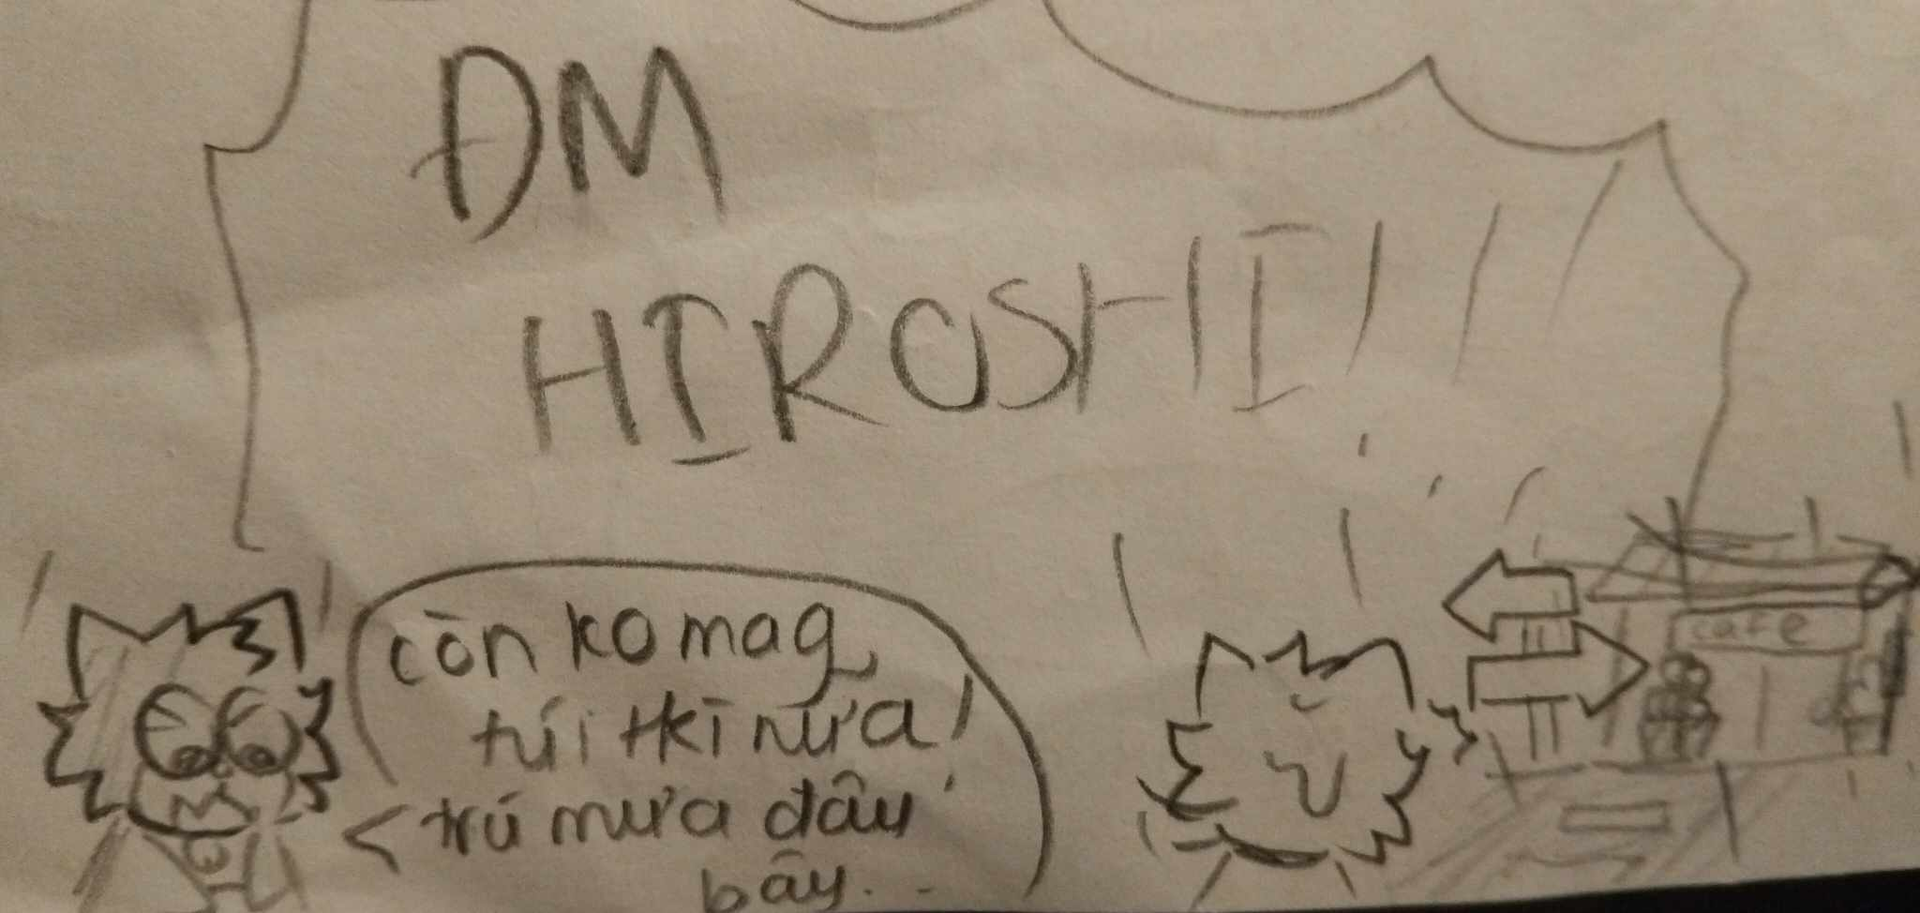 ĐM
HIROSHI!!!
còn ko mag
túi tkĩ nữa!
trú mưa đâu
bây...
cafe